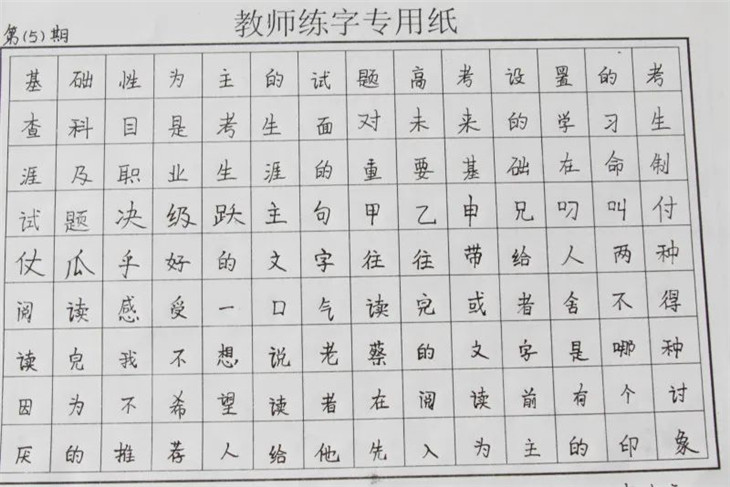 教师练字专用纸
第(5)期
基础性为主的试题高考设置的考
查科目是考生面对未来的学习生
涯及职业生涯的重要基础在命制
试题决级跃主句甲乙申兄叨叫付
仗瓜乎好的文字往往带给人两种
阅读感受一口气读完或者舍不得
读完我不想说老蔡的文字是哪种
因为不希望读者在阅读前有个讨
厌的推荐人给他先入为主的印象